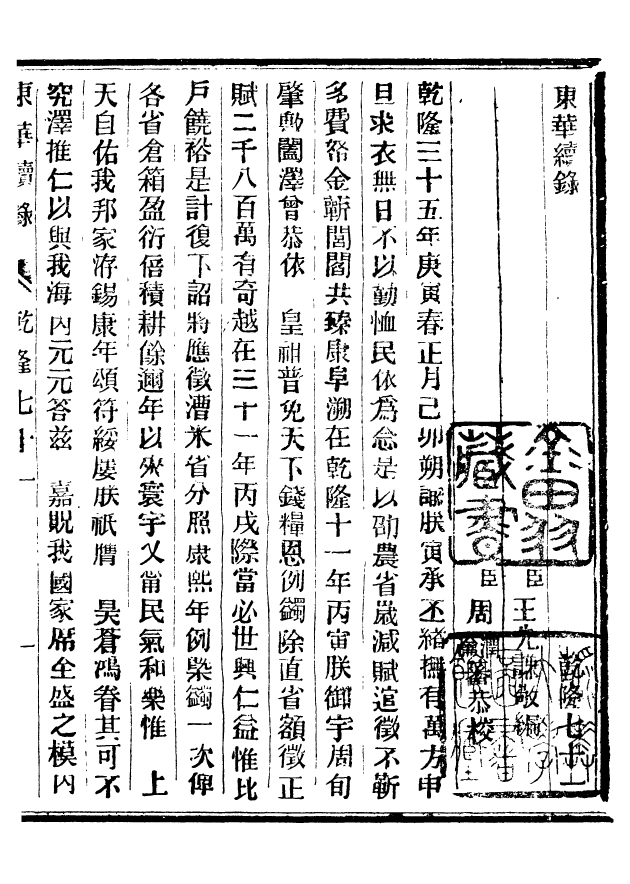 東華續錄
乾隆七十一
臣王先謙敬編
臣周潤蕃恭校
乾隆三十五年庚寅春正月己卯朔詔朕寅承丕緒撫有萬方申
旦求衣無日不以勤恤民依爲念是以劭農省歲減賦逭徵不靳
多費帑金蘄閭閻共臻康阜溯在乾隆十一年丙寅朕御宇周旬
肇敷闓澤曾恭依 皇祖普免天下錢糧恩例蠲除直省額徵正
賦二千八百萬有奇越在三十一年丙戌際當必世興仁益惟比
戶饒裕是計復下詔將應徵漕米省分照康熙年例槩蠲一次俾
各省倉箱盈衍倍積耕餘邇年以來寰宇乂甯民氣和樂惟 上
天自佑我邦家洊錫康年頌符綏屢朕祇膺 昊蒼鴻眷其可不
究澤推仁以與我海內元元答茲 嘉貺我國家席全盛之模內
東華續錄 乾隆七十一 一